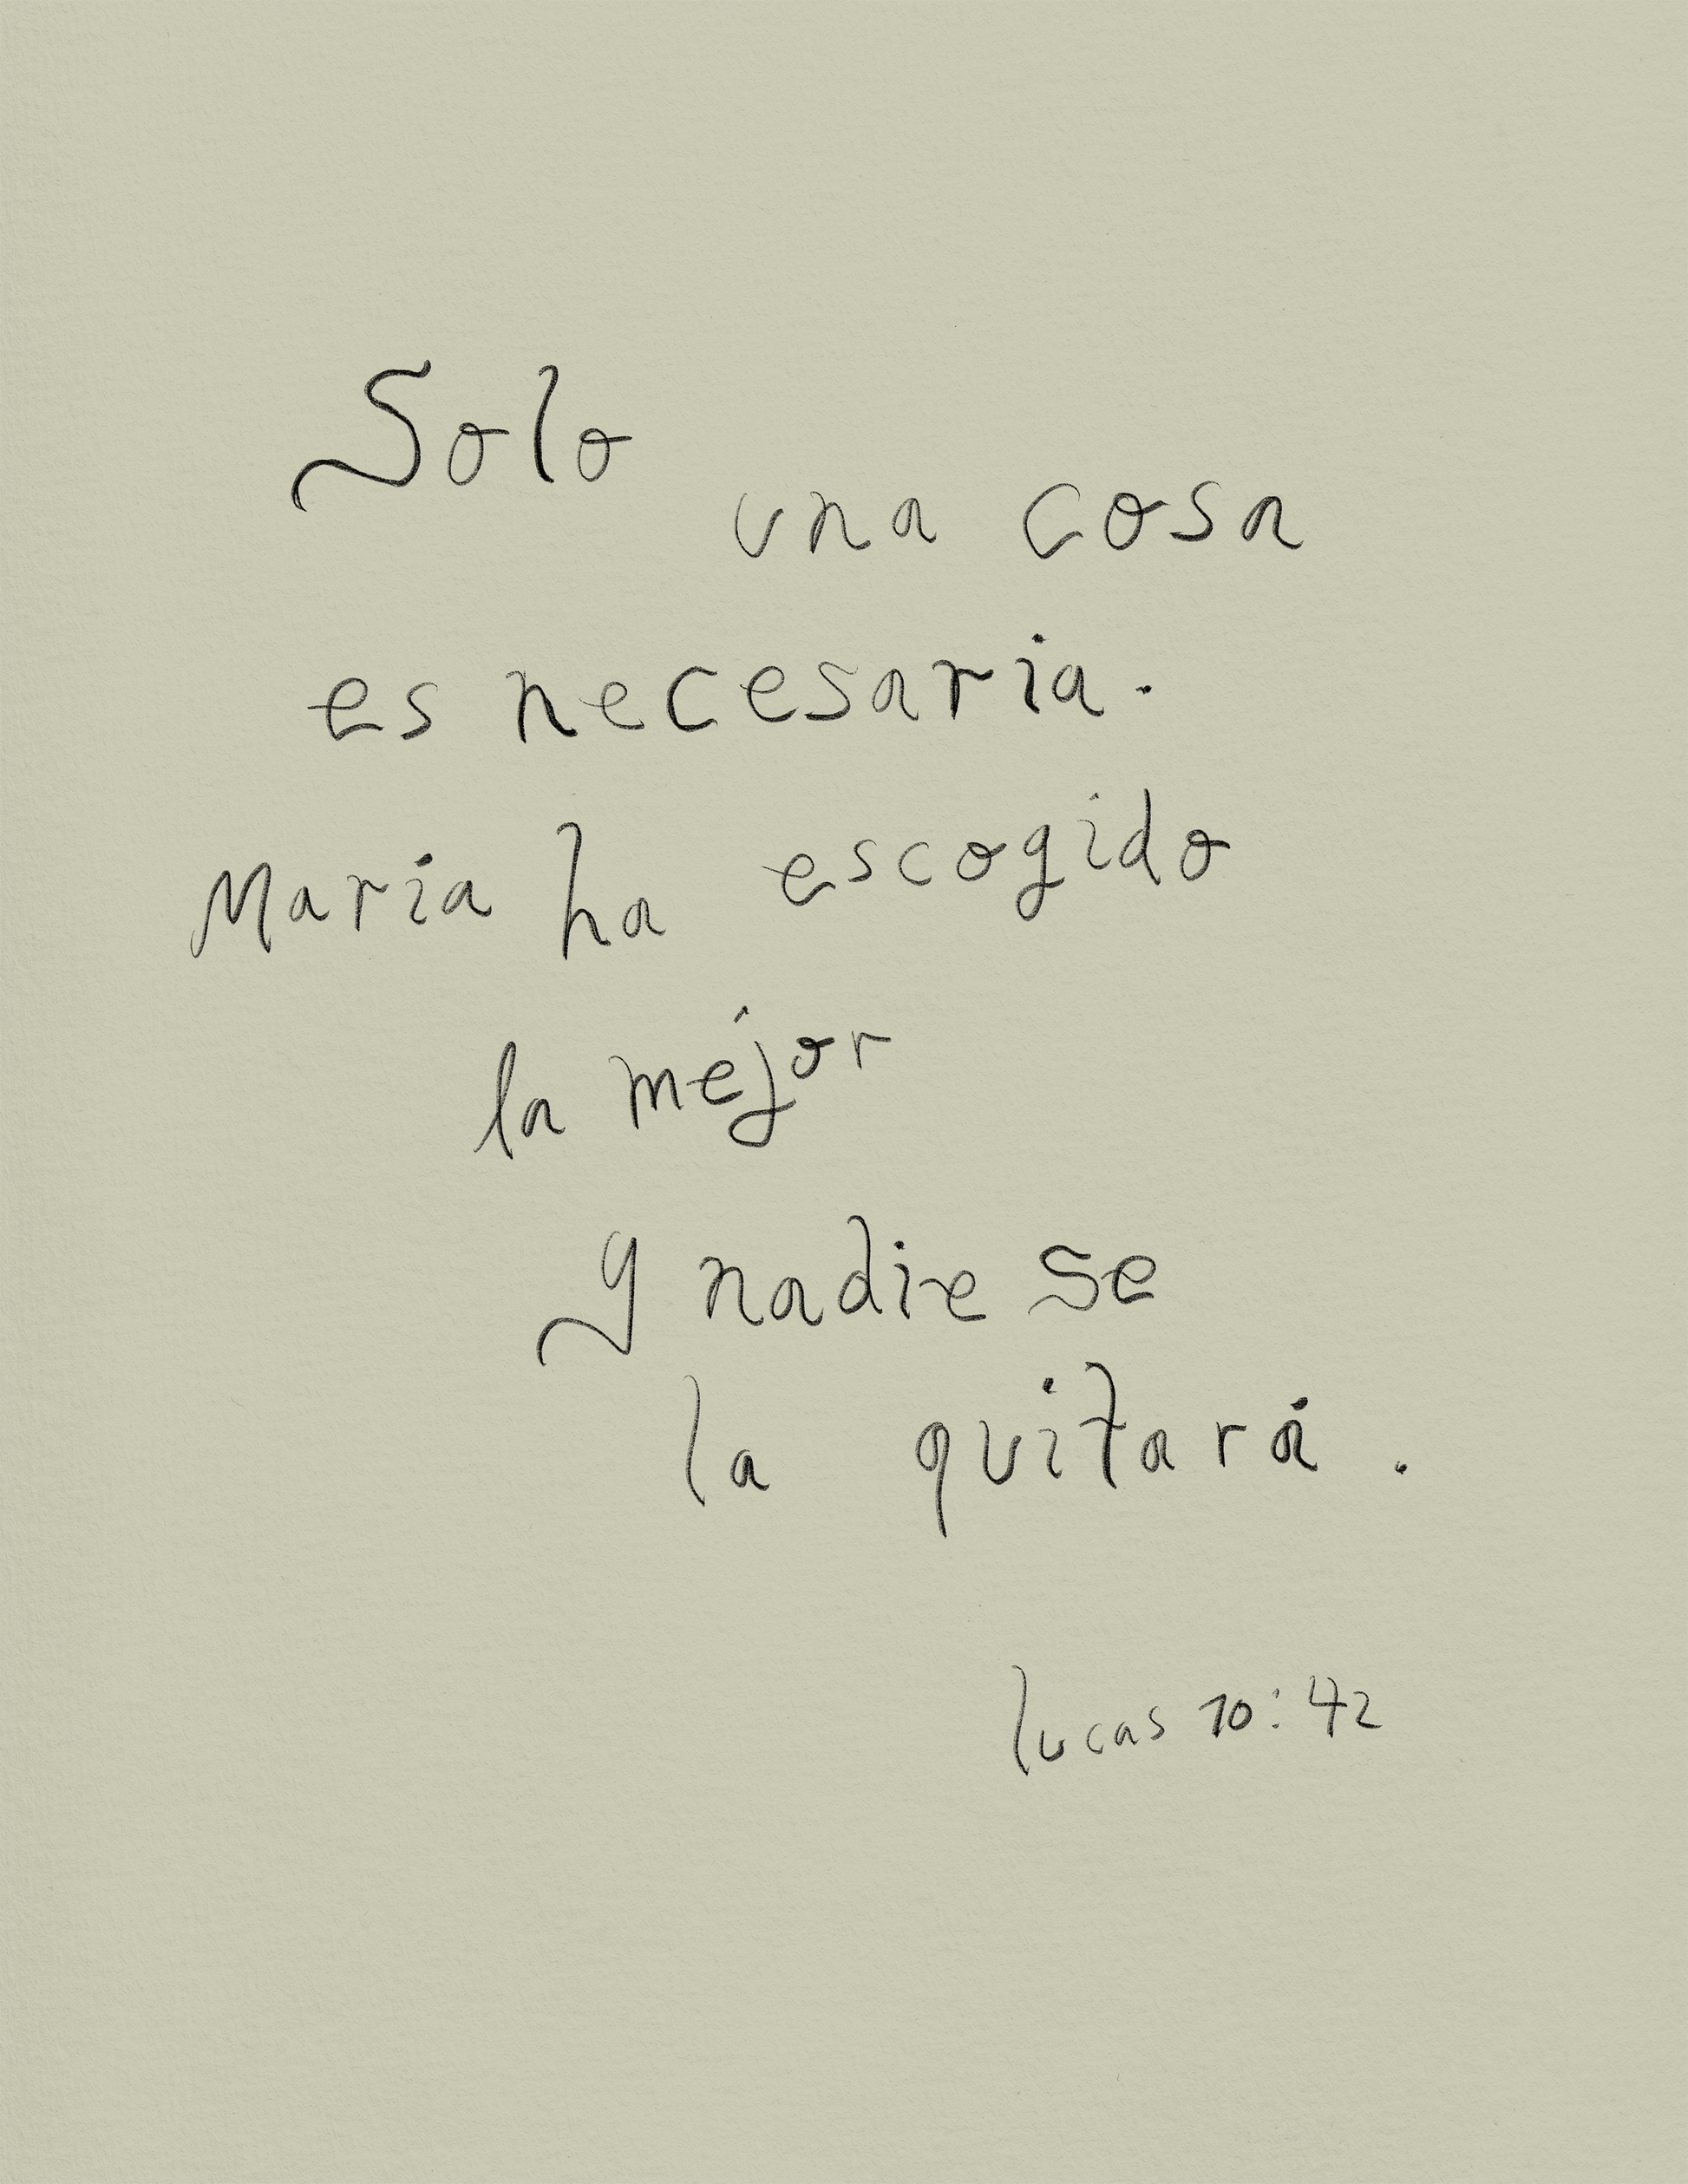 Solo
una cosa
es necesaria.
María ha escogido
la mejor
y nadie se
la quitará.
lucas 10:42